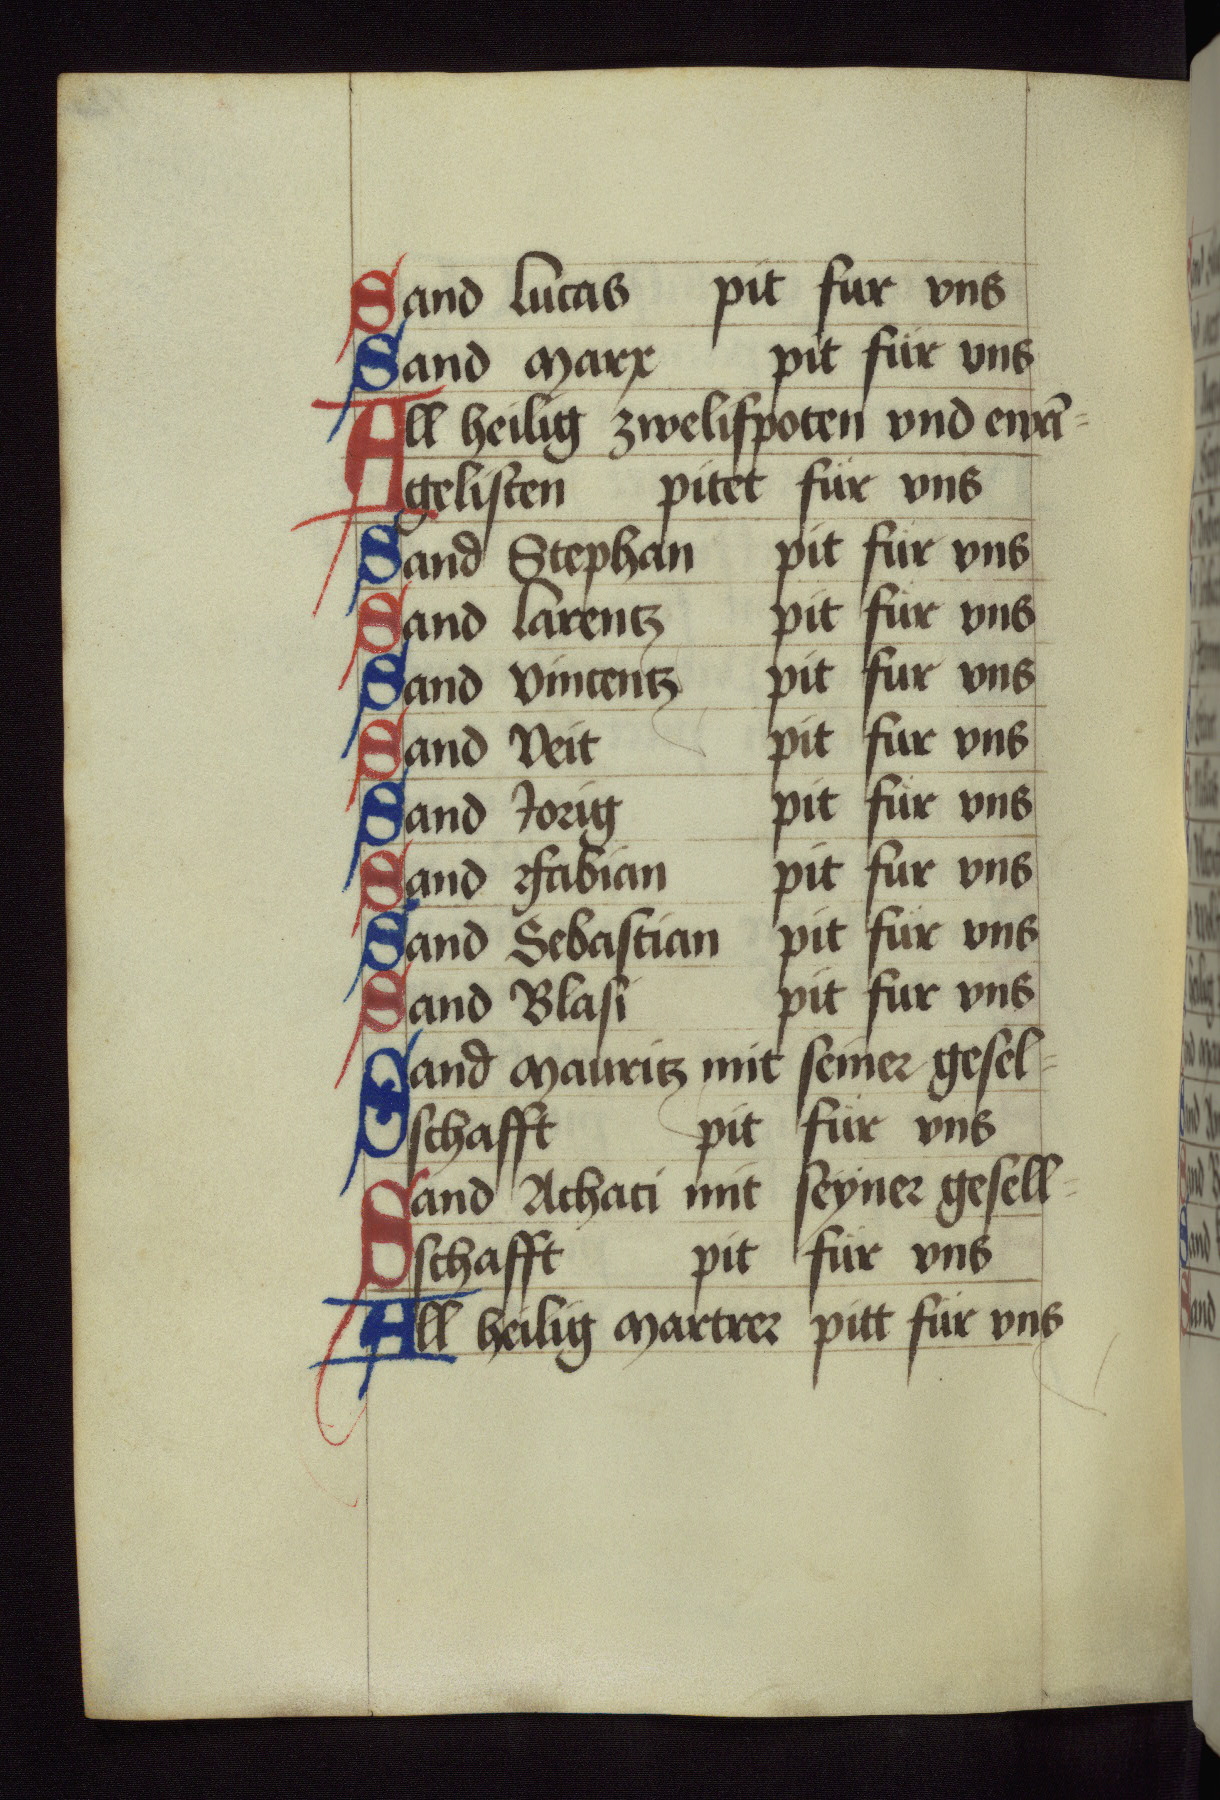 Sand Lucas pit fur vns
Sand Marx pit für vns
All heilig zwelifpoten vnd ewā=
gelisten pitet für vns
Sand Stephan pit für vns
Sand Larentz pit für vns
Sand Vincentz pit fur vns
Sand Veit pit fur vns
Sand Jorig pit für vns
Sand Fabian pit fur vns
Sand Sebastian pit für vns
Sand Blasi pit fur vns
Sand Mauritz mit seiner gesel=
schafft pit für vns
Sand Achaci mit seyner gesell=
schafft pit für vns
All heilig Martrer pitt für vns